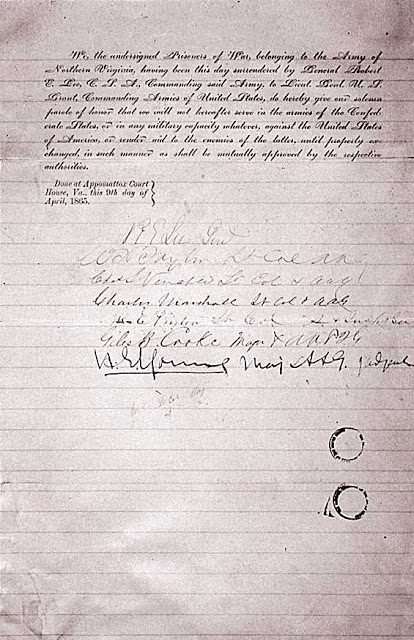 We, the undersigned Prisoners of War, belonging to the Army of
Northern Virginia, having been this day surrendered by General Robert
E. Lee, C. S. A., Commanding said Army, to Lieut. Genl. U. S.
Grant, Commanding Armies of United States, do hereby give our solemn
parole of honor that we will not hereafter serve in the armies of the Confed-
erate States, or in any military capacity whatever, against the United States
of America, or render aid to the enemies of the latter, until properly ex-
changed, in such manner as shall be mutually approved by the respective
authorities.
Done at Appomattox Court
House, Va., this 9th day of
April, 1865.
R E Lee Genl
W H Taylor Lt Col AAG
Chas S Venable Lt Col & AAG
Charles Marshall Lt Col & AAG
H E Peyton Lt Col & Insp
Giles B Cooke Major & AAIG
H. E. Young Maj AAG